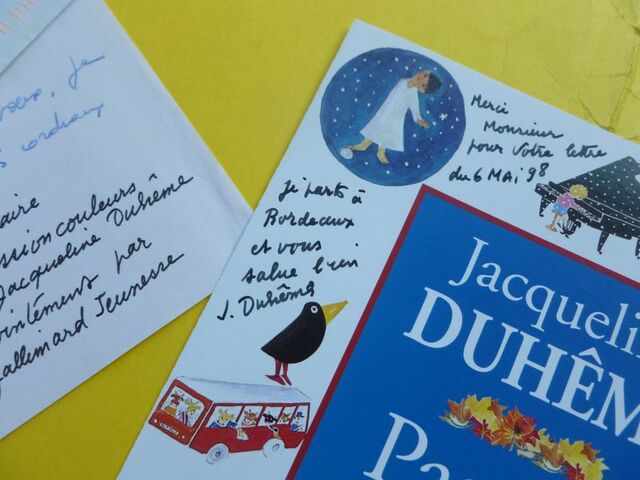 je
cordiaux
couleurs
Jacqueline Duhême
par
Gallimard Jeunesse
Merci
Monsieur
pour votre lettre
du 6 MAI 98
je parts à
Bordeaux
et vous
salue bien
J. Duhême
Jacqueli
DUHÊM
Pa